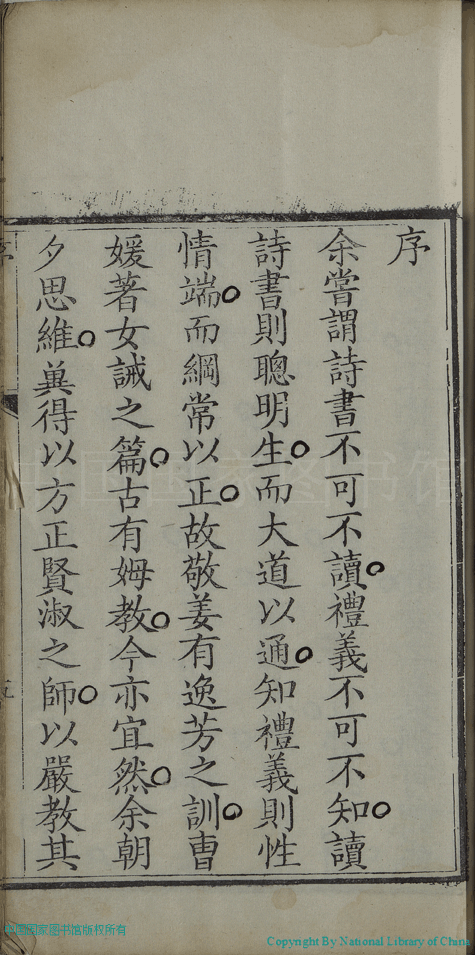 序
余嘗謂詩書不可不讀。禮義不可不知。讀
詩書則聰明生。而大道以通。知禮義則性
情端。而綱常以正。故敬姜有逸芳之訓。曹
媛著女誡之篇。古有姆教。今亦宜然。余朝
夕思維。冀得以方正賢淑之師。以嚴教其
中国国家图书馆
中国国家图书馆版权所有
Copyright By National Library of China